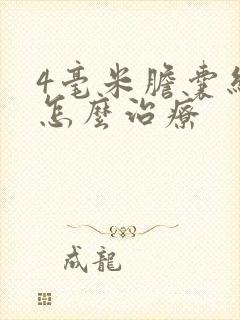 4毫米膽囊
怎麼治療
成龍